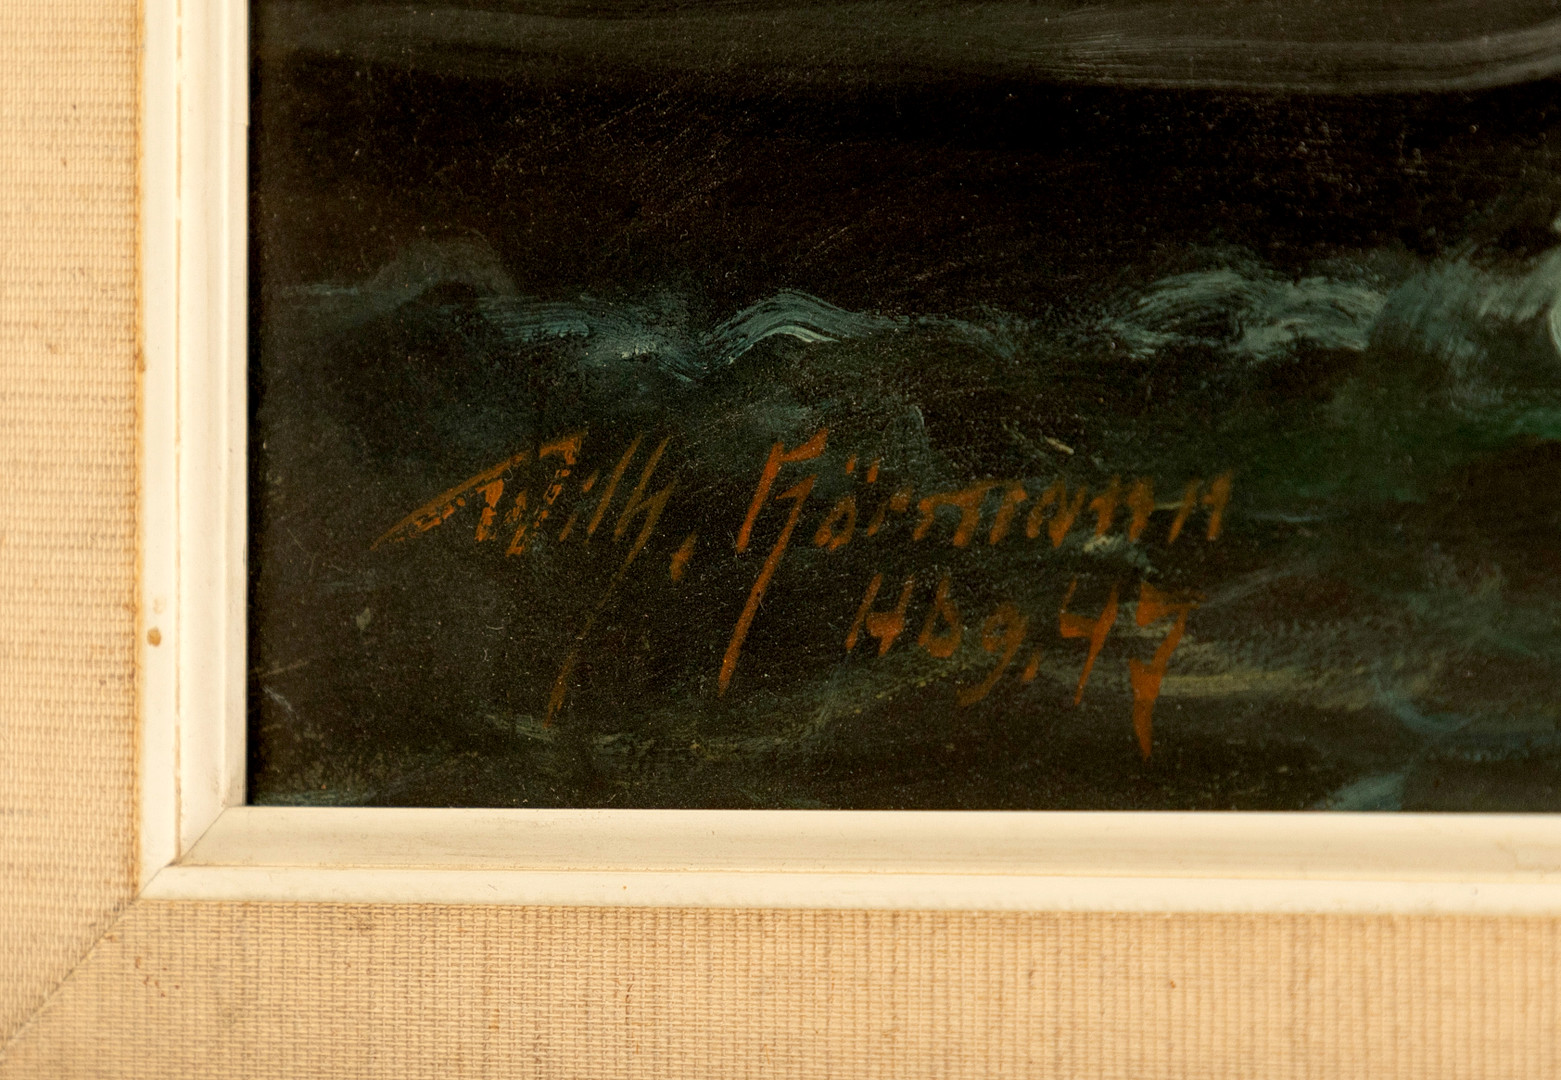 Wilh. Körmann
Hbg. 47